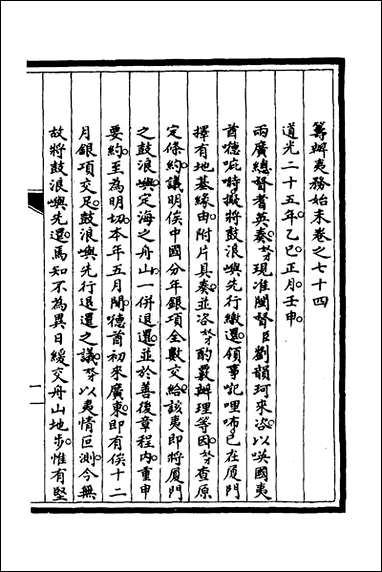 籌辦夷務始末卷之七十四
道光二十五年乙巳正月壬申
兩廣總督耆英奏。奴才現准閩督臣劉韻珂來咨。以㗆國夷
酋德呢時擬將鼓浪嶼先行繳還。領事記哩布。已在厦門
擇有地基緣由。附片具奏。並咨奴才酌覈辦理等因。奴才查原
定條約。議明俟中國分年銀項全數交給。該夷即將厦門
之鼓浪嶼。定海之舟山一併退還。並於善後章程內。重申
要約。至為明切。本年五月間。德酋初來廣東。即有俟十二
月銀項交足。鼓浪嶼先行退還之議。奴才以夷情叵測。今無
故將鼓浪嶼先還。焉知不為異日緩交舟山地步。惟有堅
一